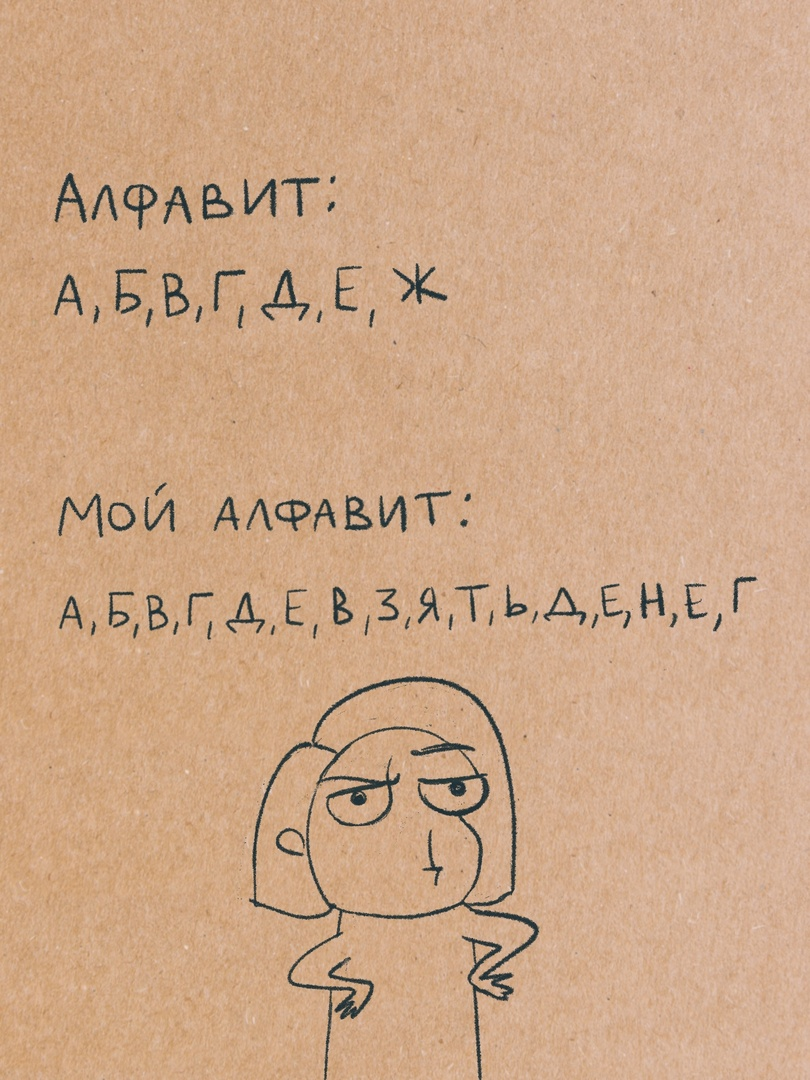 АЛФАВИТ:
А, Б, В, Г, Д, Е, Ж
МОЙ АЛФАВИТ:
А, Б, В, Г, Д, Е, В, З, Я, Т, Ь, Д, Е, Н, Е, Г